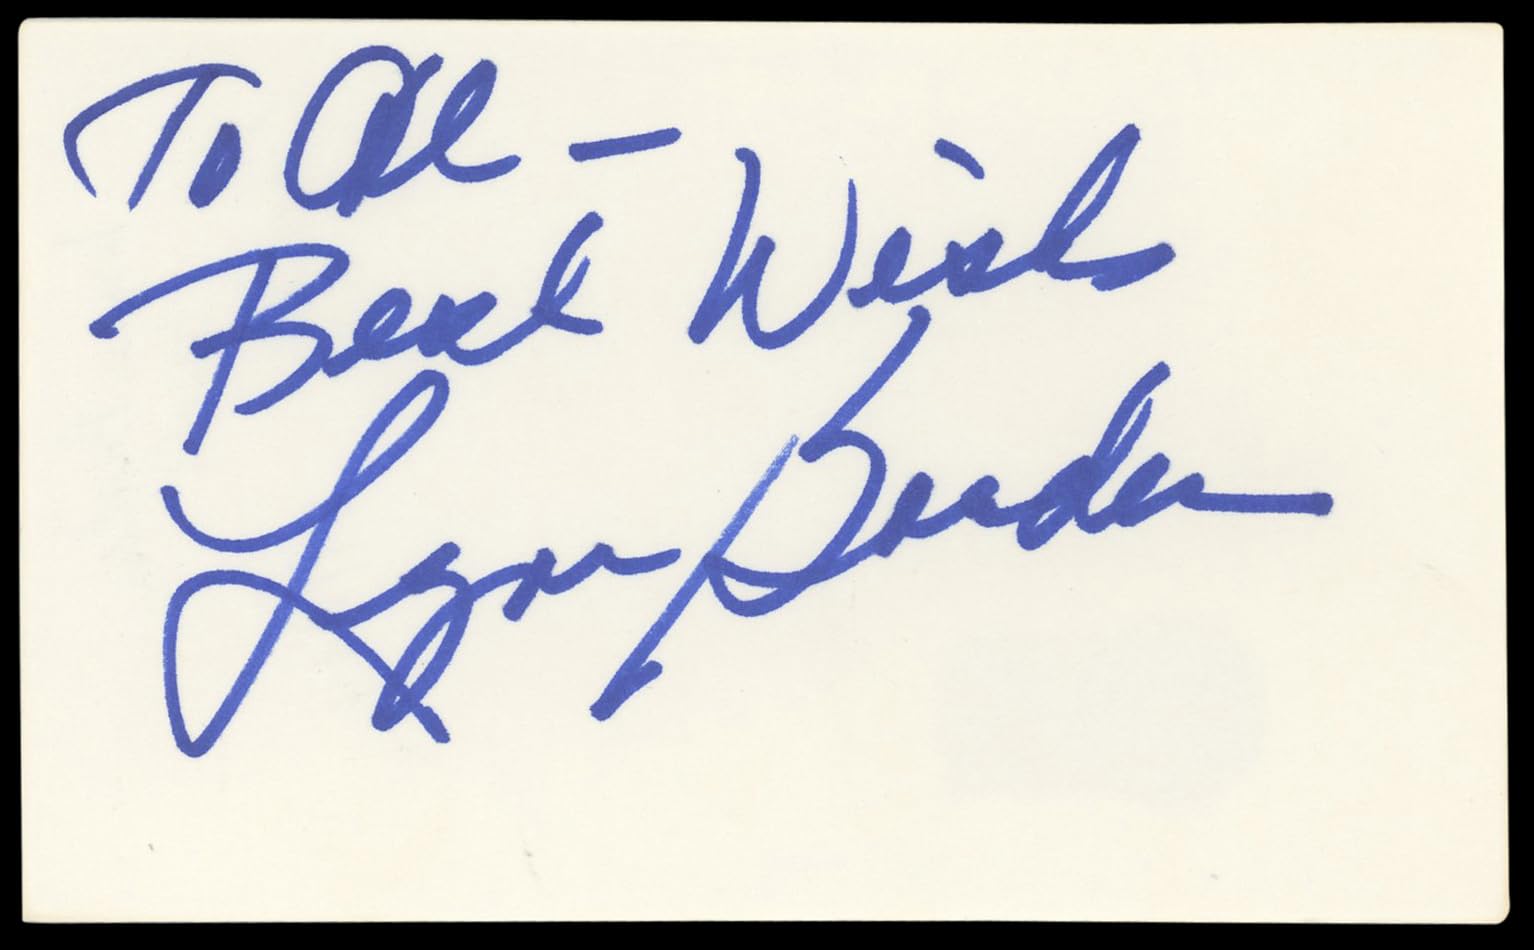 To Al –
Best Wishes
Lynn Borden